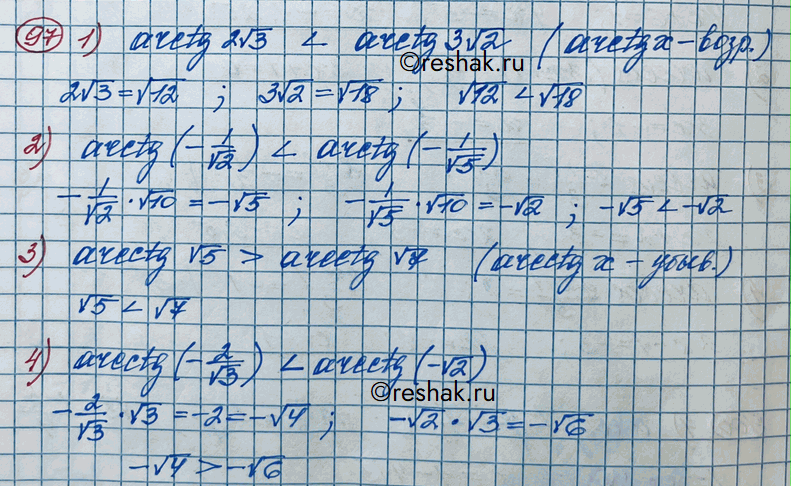 97 1) arctg 2√3 < arctg 3√2 (arctg x – возр.)
©reshak.ru
2√3 = √12 ; 3√2 = √18 ; √12 < √18
2) arctg (-1/√2) < arctg (-1/√5)
-1/√2 · √10 = -√5 ; -1/√5 · √10 = -√2 ; -√5 < -√2
3) arcctg √5 > arcctg √7 (arcctg x – убыв.)
√5 < √7
4) arcctg (-2/√3) < arcctg (-√2)
©reshak.ru
-2/√3 · √3 = -2 = -√4 ; -√2 · √3 = -√6
-√4 > -√6